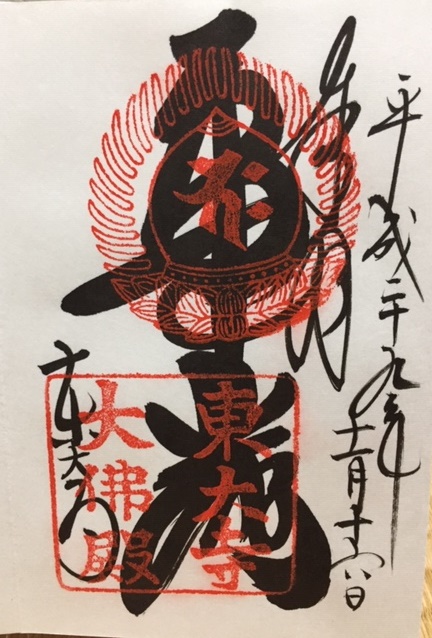 奉拝
平成二十九年十一月十六日
華厳
東大寺
東大寺
大佛殿